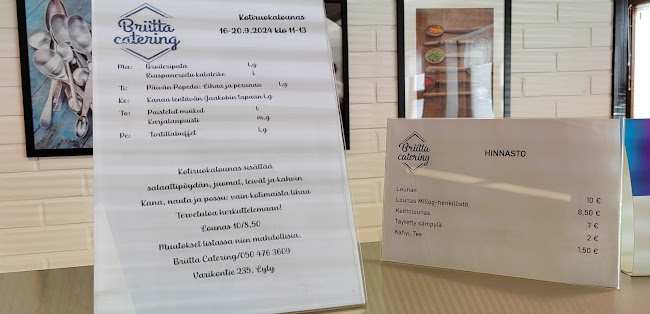 Briitta
catering
Kotiruokalounas
16-20.9.2024 klo 11-13
Ma: Broileripata l,g
Ruispaneroitu kalaleike l
Ti: Päivän Popeda: Lihaa ja perunaa l,g
Ke: Kanaa lentävän Jaakobin tapaan l,g
To: Paistetut muikut l
Karjalanpaisti m,g
Pe: Tortillabuffet l,g
Kotiruokalounas sisältää
salaattipöydän, juomat, leivät ja kahvin
Kana, nauta ja possu: vain kotimaista lihaa
Tervetuloa herkuttelemaan!
Lounas 10/8,50
Muutokset listassa niin mahdollisia.
Briitta Catering/050 476 3609
Varikontie 235, Lyly
Briitta
catering
HINNASTO
Lounas 10 €
Lounas Millog-henkilöstö 8,50 €
Keittolounas 7 €
Täytetty sämpylä 2 €
Kahvi, Tee 1,50 €